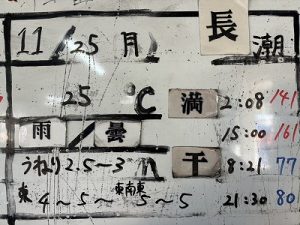 11/25 月 長潮
25 ℃ 満 2:08 141
雨/曇 15:00 161
うねり2.5～3m 干 8:21 77
東 4～5～東南東 5～5 21:30 80